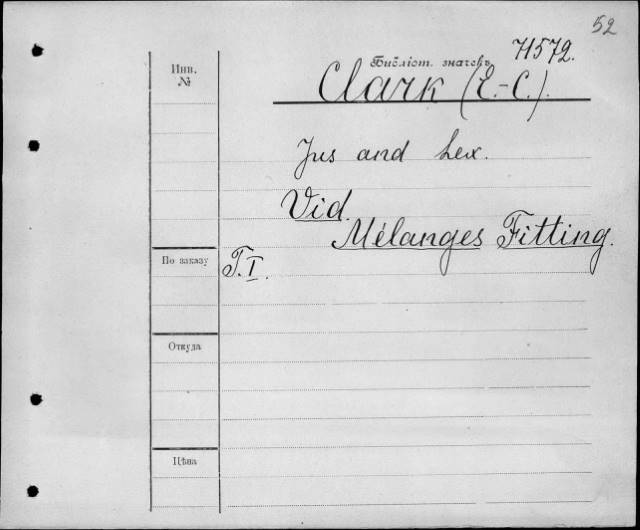 52
Инв.
№
Бібліот. значекъ H572.
Clark (E.-C.).
Jus and Lex.
Vid.
Mélanges Fitting.
По заказу
T.I.
Откуда
Цѣна